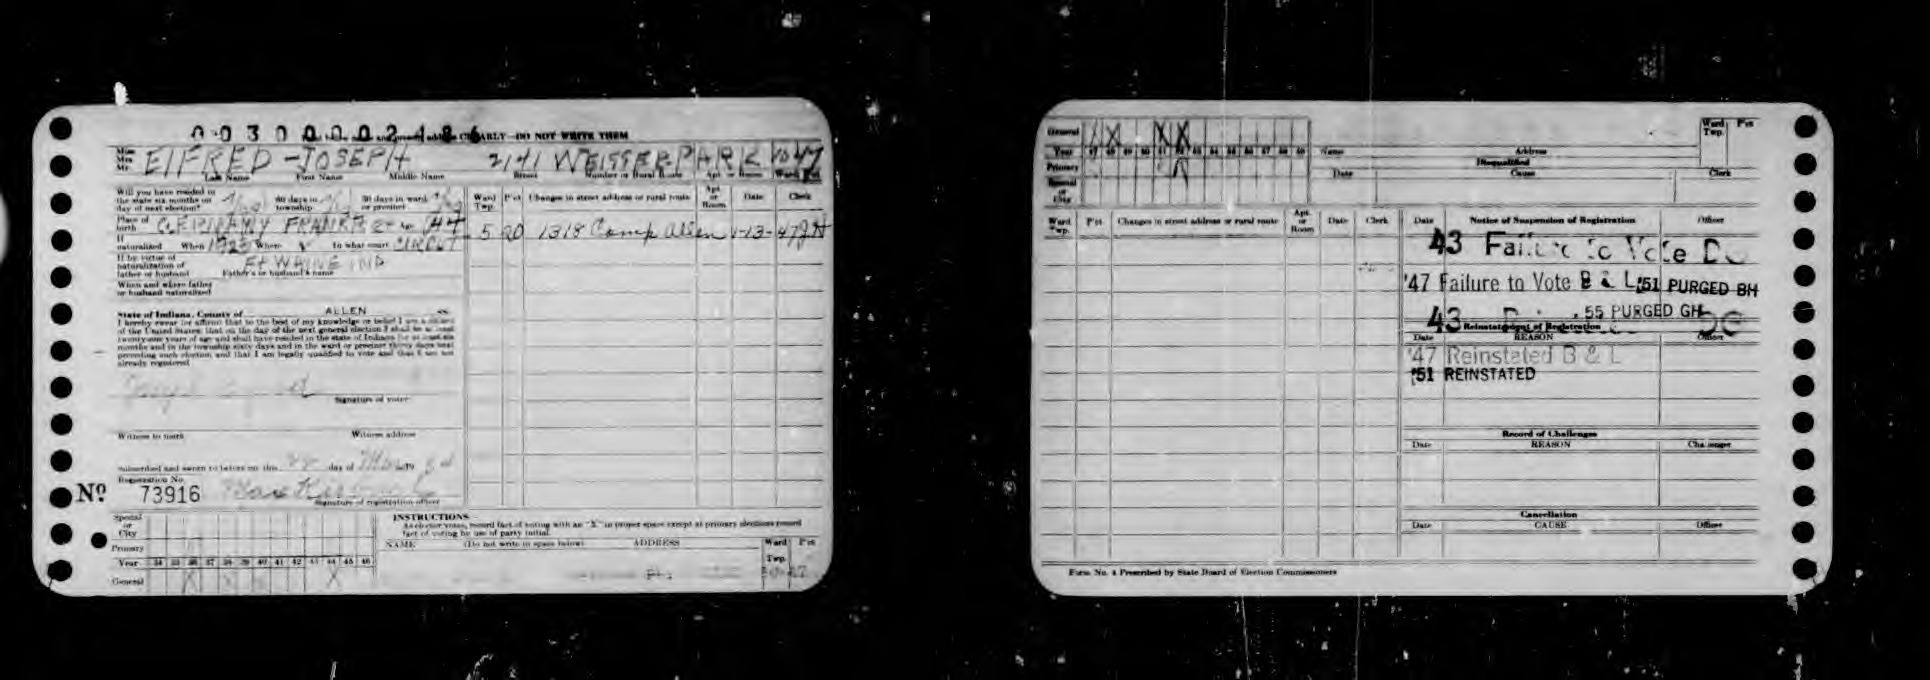 0 0 3 0 0 0 0 2 1 8
ARLY—DO NOT WRITE THEM
Miss
Mrs
Mr.
EIFRED - JOSEPH 2141 WEISSER PARK 10 47
Last Name First Name Middle Name Street Number or Rural Route Apt. or Room Ward Pct
Will you have resided in the state six months on day of next election? 60 days in township 30 days in ward or precinct
Place of birth GERMANY Age 47
If naturalized When 1923 Where to what court
If by virtue of naturalization of father or husband Father's or husband's name
Ft WAINE IND
When and where father or husband naturalized
Ward Twp. P'ct Changes in street address or rural route Apt. or Room Date Clerk
5 20 1318 Camp Allen 1-13-47
State of Indiana, County of ALLEN ss
I hereby swear (or affirm) that to the best of my knowledge or belief I am a citizen
of the United States; that on the day of the next general election I shall be at least
twenty-one years of age and shall have resided in the state of Indiana for at least six
months and in the township sixty days and in the ward or precinct thirty days next
preceding such election and that I am legally qualified to vote and that I am not
already registered
Signature of voter
Witness to mark Witness address
Subscribed and sworn to before me this day of 19
Registration No.
No 73916
Signature of registration officer
Special or City
Primary
Year 34 35 36 37 38 39 40 41 42 43 44 45 46
General X X
INSTRUCTIONS
As elector votes, record fact of voting with an "X" in proper space except at primary elections record
fact of voting by use of party initial.
NAME (Do not write in space below) ADDRESS Ward Twp. P'ct
General X X X
Year 47 48 49 50 51 52 53 54 55 56 57 58 59
Primary
Special or City
Name Address Ward Twp. P'ct
Disqualified
Date Cause Clerk
Ward Twp. P'ct Changes in street address or rural route Apt. or Room Date Clerk
Date Notice of Suspension of Registration Officer
43 Failure to Vote
'47 Failure to Vote B & L '51 PURGED BH
43 55 PURGED GH
Reinstatement of Registration
Date REASON Officer
'47 Reinstated B & L
'51 REINSTATED
Record of Challenges
Date REASON Challenger
Cancellation
Date CAUSE Officer
Form No. 4 Prescribed by State Board of Election Commissioners